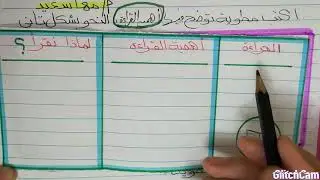 مها سعيد
اكتب مطوية توضح فيها أهمية القراءة على النحو بشكل تانى
القراءة
أهمية القراءة
لماذا نقرأ ؟
GlitchCam